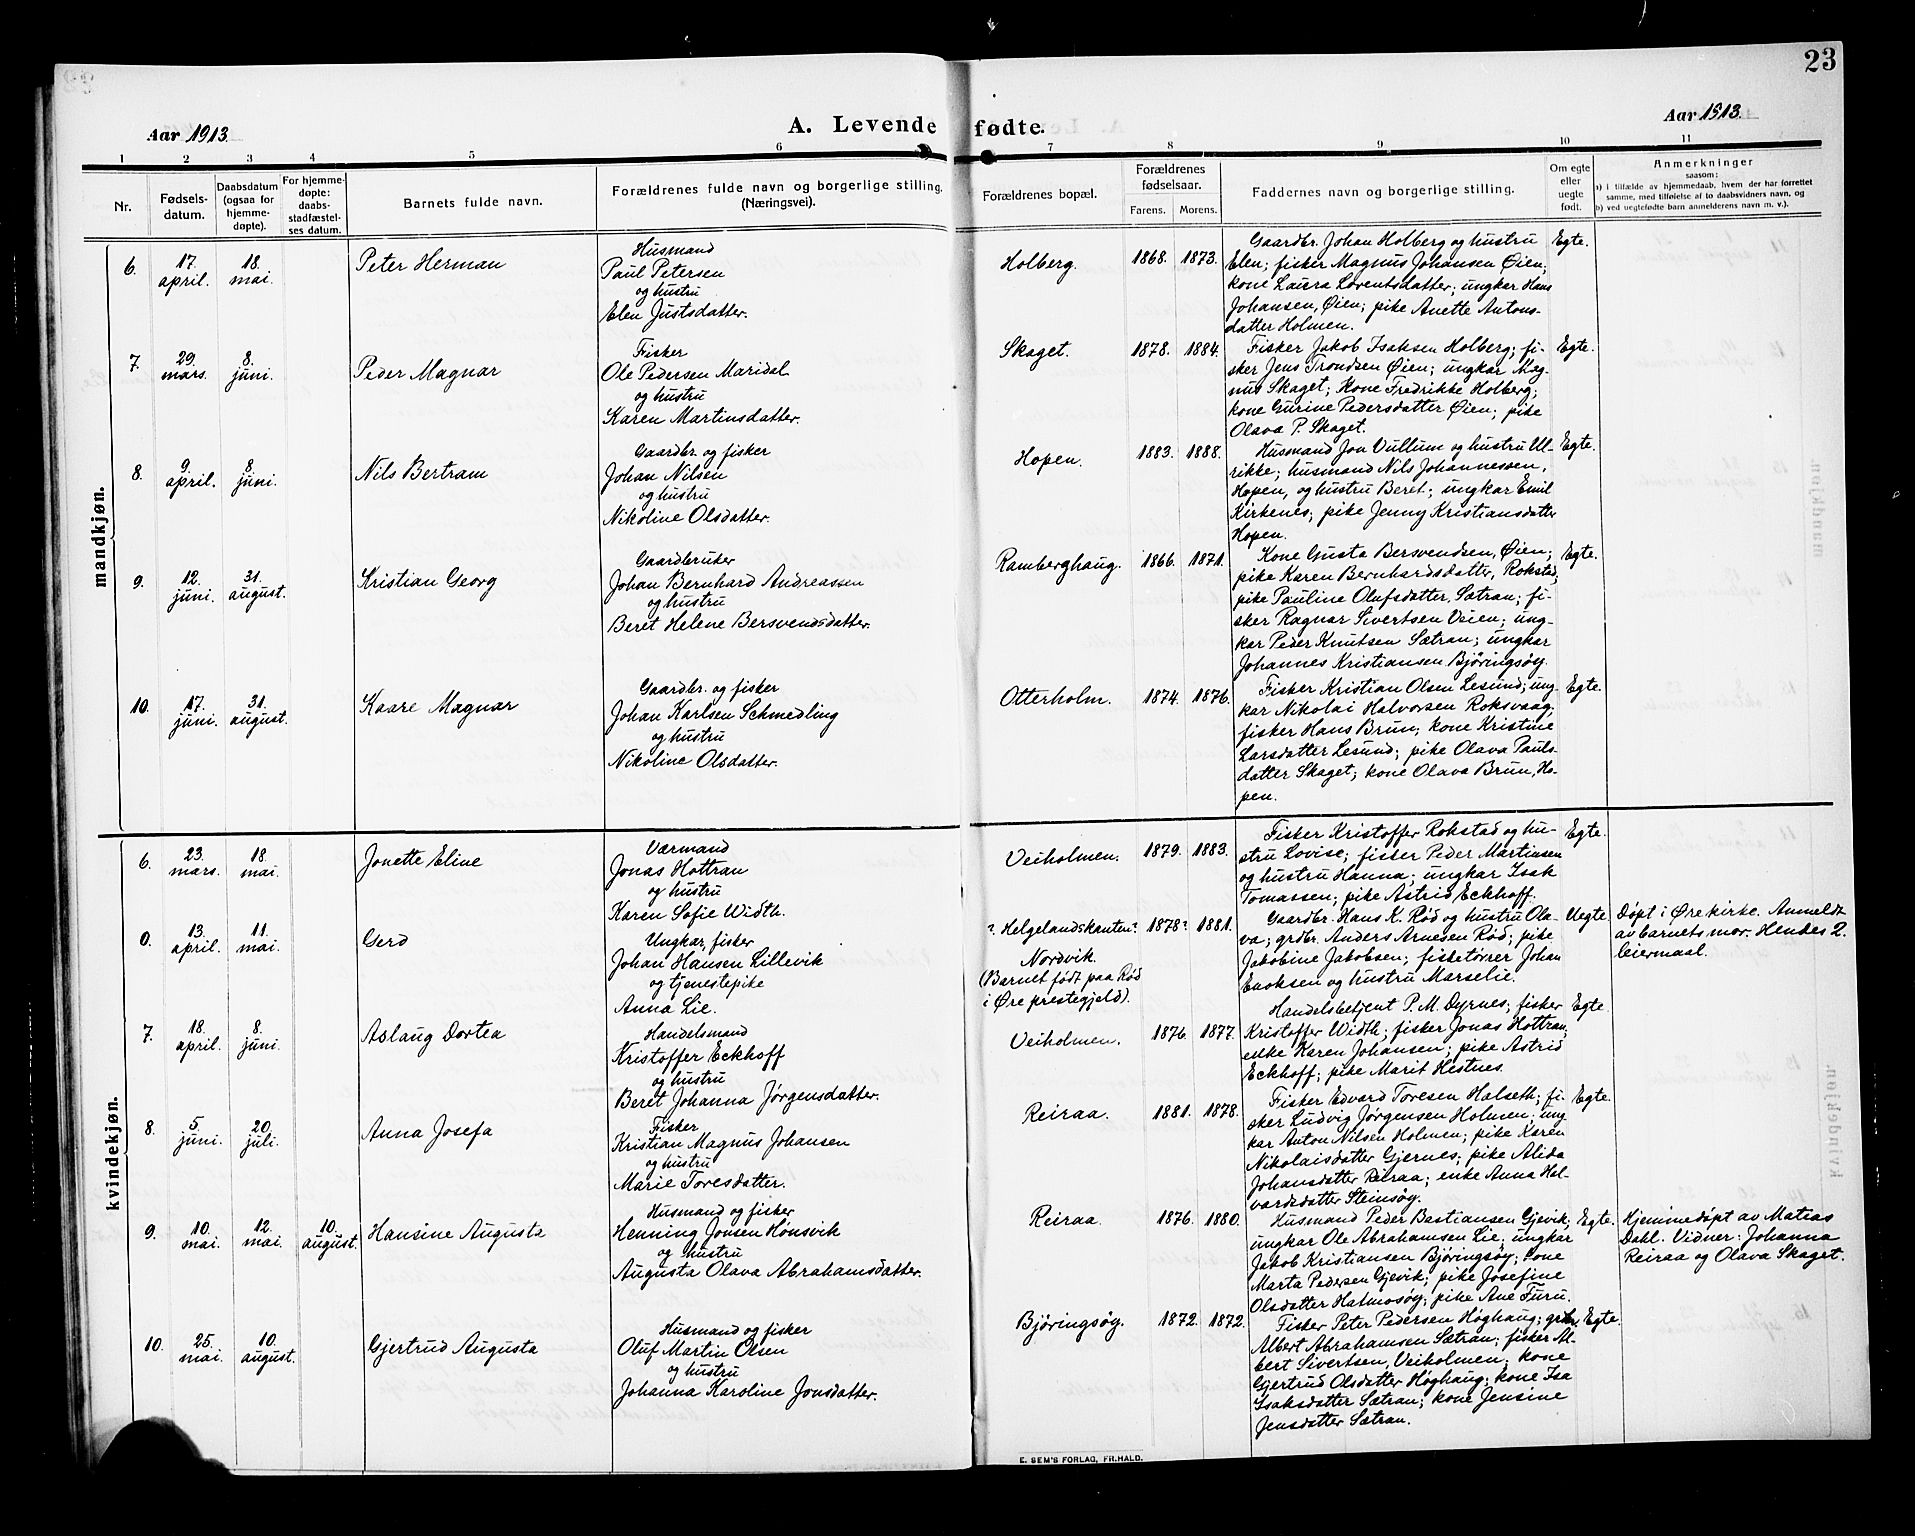 23
Aar 1913.
A. Levende fødte.
Aar 1913.
1 2 3 4 5 6 7 8 9 10 11
Nr.
Fødsels-
datum.
Daabsdatum
(ogsaa for
hjemme-
døpte).
For hjemme-
døpte:
daabs-
stadfæstel-
ses datum.
Barnets fulde navn.
Forældrenes fulde navn og borgerlige stilling.
(Næringsvei).
Forældrenes bopæl.
Forældrenes
fødselsaar.
Farens. Morens.
Faddernes navn og borgerlige stilling.
Om egte
eller
uegte
født.
Anmerkninger
saasom:
a) i tilfælde av hjemmedaab, hvem der har forrettet
samme, med tilføielse av to daabsvidners navn, og
b) ved uegtefødte barn anmelderens navn m. v.).
mandkjøn.
6.
17.
april.
18.
mai.
Peter Herman
Husmand
Paul Petersen
og hustru
Elen Justsdatter.
Holberg.
1868. 1873.
Gaardbr. Johan Holberg og hustru
Elen; fisker Magnus Johansen Øien;
kone Laura Lorentsdatter; ungkar Hans
Johansen, Øien; pike Anette Antons-
datter Holmen.
Egte.
7.
29.
mars.
8.
juni.
Peder Magnar
Fisker
Ole Pedersen Maridal
og hustru
Karen Martinsdatter.
Skaget.
1878. 1884.
Fisker Jakob Isaksen Holberg; fi-
sker Jens Trondsen Øien; ungkar Mag-
nus Skaget; Kone Fredrikke Holberg;
kone Gurine Pedersdatter Øien; pike
Olava P. Skaget.
Egte.
8.
9.
april.
8.
juni.
Nils Bertram
Gaardbr. og fisker
Johan Nilsen
og hustru
Nikoline Olsdatter.
Hopen.
1883. 1888.
Husmand Jon Vullum og hustru Ul-
rikke; husmand Nils Johannessen,
Hopen, og hustru Beret; ungkar Emil
Kirkenes; pike Jenny Kristiansdatter
Hopen.
Egte.
9.
12.
juni.
31.
august.
Kristian Georg
Gaardbruker
Johan Bernhard Andreassen
og hustru
Beret Helene Bersvendsdatter.
Ramberghaug.
1866. 1871.
Kone Gusta Bersvendsen, Øien;
pike Karen Bernhardsdatter, Rokstad;
pike Pauline Olufsdatter, Sætran; fi-
sker Ragnar Sivertsen Veien; ung-
kar Peder Knutsen Sætran; ungkar
Johannes Kristiansen Bjøringsøy.
Egte.
10.
17.
juni.
31.
august.
Kaare Magnar
Gaardbr. og fisker
Johan Karlsen Schmedling
og hustru
Nikoline Olsdatter.
Otterholm.
1874. 1876.
Fisker Kristian Olsen Lesund; ung-
kar Nikolai Halvorsen Roksvaag;
fisker Hans Brun; kone Kristine
Larsdatter Lesund; pike Olava Pauls-
datter Skaget; kone Olava Brun, Ho-
pen.
Egte.
kvindekjøn.
6.
23.
mars.
18.
mai.
Jonette Eline
Værmand
Jonas Hottran
og hustru
Karen Sofie Width.
Veiholmen.
1879. 1883.
Fisker Kristoffer Rokstad og hu-
stru Lovise; fisker Peder Martinsen
og hustru Hanna; ungkar Isak
Tomassen; pike Astrid Eckhoff.
Egte.
0.
13.
april.
11.
mai.
Gerd
Ungkar, fisker
Johan Hansen Lillevik
og tjenestepike
Anna Lie.
? Helgelandskanten?
Nordvik.
(Barnet født paa Rød
i Øre prestegjeld).
1878? 1881.
Gaardbr. Hans K. Rød og hustru Ola-
va; grdbr. Anders Arnesen Rød; pike
Jakobine Jakobsen; fisketørrer Johan
Enoksen og hustru Marselie.
Uegte
Døpt i Øre kirke. Anmeldt
av barnets mor. Hendes 2.
leiermaal.
7.
18.
april.
8.
juni.
Aslaug Dortea
Handelsmand
Kristoffer Eckhoff
og hustru
Beret Johanna Jørgensdatter.
Veiholmen.
1876. 1877.
Handelsbetjent P. M. Dyrnes; fisker
Kristoffer Width; fisker Jonas Hottran;
enke Karen Johansen; pike Astrid
Eckhoff; pike Marit Hestnes.
Egte.
8.
5.
juni.
20.
juli.
Anna Josefa
Fisker
Kristian Magnus Johansen
og hustru
Marie Toresdatter.
Reiraa.
1881. 1878.
Fisker Edvard Toresen Halseth; fi-
sker Ludvig Jørgensen Holmen; ung-
kar Anton Nilsen Holmen; pike Karen
Nikolaisdatter Gjernes; pike Alida
Johansdatter Reiraa; enke Anna Hal-
vardsdatter Steinsøy.
Egte.
9.
10.
mai.
12.
mai.
10.
august.
Hansine Augusta
Husmand og fisker
Henning Jonsen Hønsvik
og hustru
Augusta Olava Abrahamsdatter.
Reiraa.
1876. 1880.
Husmand Peder Bastiansen Gjevik;
ungkar Ole Abrahamsen Lie; ungkar
Jakob Kristiansen Bjøringsøy; kone
Marta Pedersen Gjevik; pike Josefine
Olsdatter Hatmosøy; pike Ane Furu.
Egte.
Hjemmedøpt av Matias
Dahl. Vidner: Johanna
Reiraa og Olava Skaget.
10.
25.
mai.
10.
august.
Gjertrud Augusta
Husmand og fisker
Oluf Martin Olsen
og hustru
Johanna Karoline Jonsdatter.
Bjøringsøy.
1872. 1872.
Fisker Peter Pedersen Høghaug; grdbr.
Albert Abrahamsen Sætran; fisker Al-
bert Sivertsen, Veiholmen; kone
Gjertrud Olsdatter Høghaug; kone Isa
Isaksdatter Sætran; kone Jensine
Jensdatter Sætran.
Egte.
E. SEM'S FORLAG, FR.HALD.